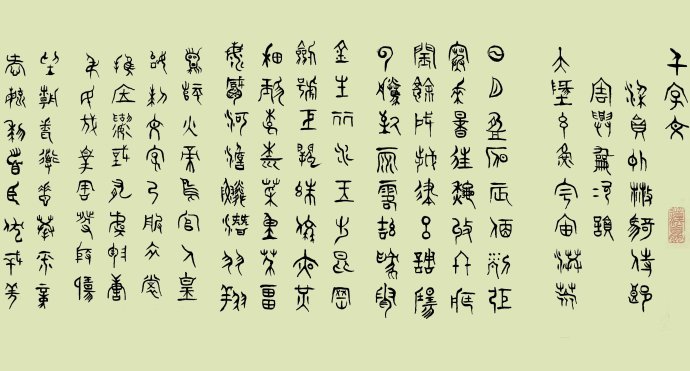 千字文
梁員外散騎侍郎
周興嗣次韻
天地玄黃宇宙洪荒
日月盈昃辰宿列張
寒來暑往秋收冬藏
閏餘成歲律呂調陽
雲騰致雨露結為霜
金生麗水玉出崑岡
劍號巨闕珠稱夜光
果珍李柰菜重芥薑
海鹹河淡鱗潛羽翔
龍師火帝鳥官人皇
始制文字乃服衣裳
推位讓國有虞陶唐
弔民伐罪周發殷湯
坐朝問道垂拱平章
愛育黎首臣伏戎羌